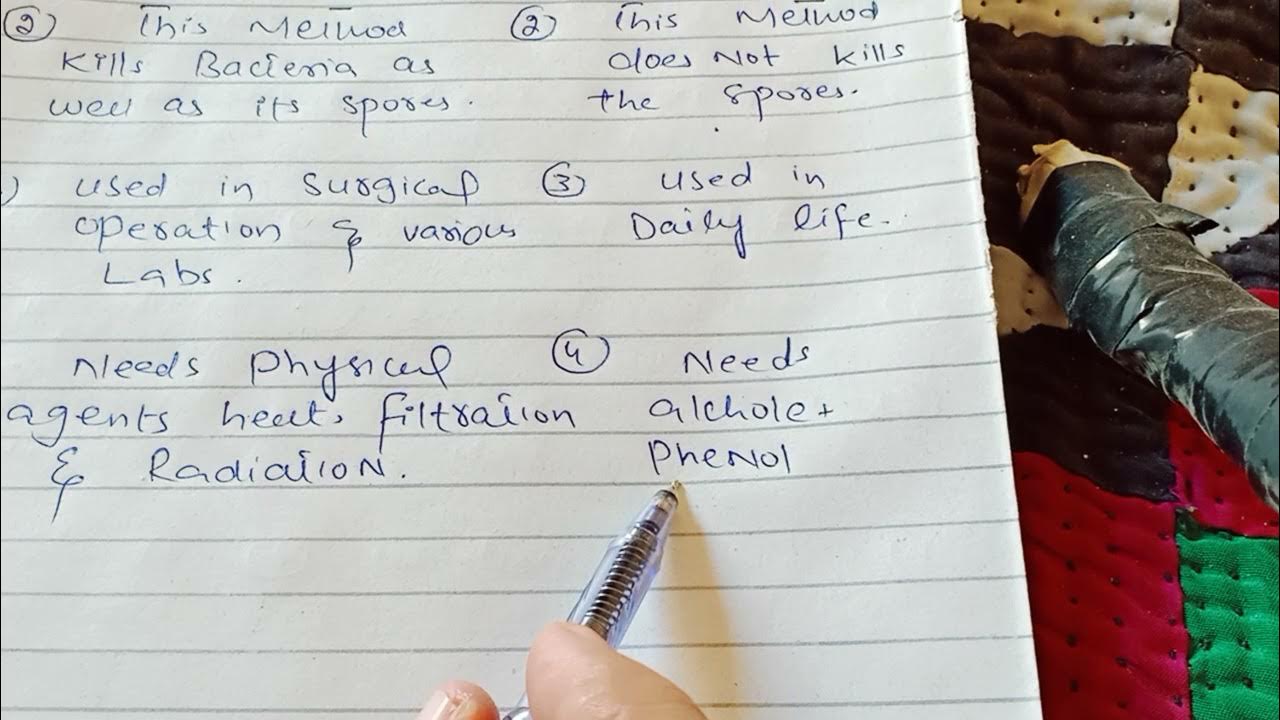 ② This Method
Kills Bacteria as
well as its spores.
② This Method
does Not kills
the spores.
) used in surgical
operation & various
Labs.
③ used in
Daily life.
Needs physical
agents heat, filtration
& Radiation.
④ Needs
alchole +
Phenol